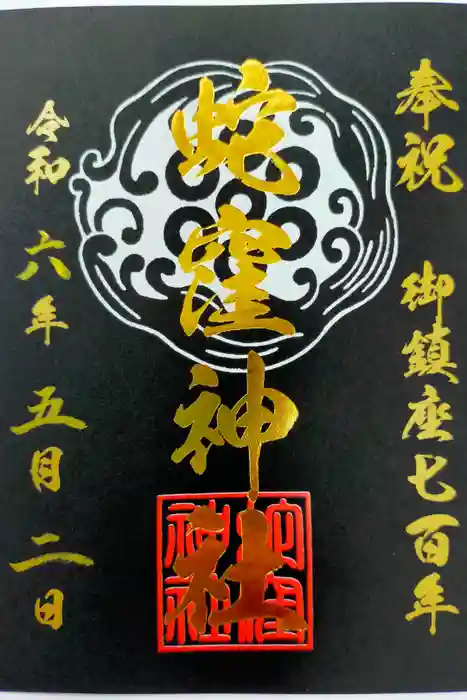 奉祝 御鎮座七百年
蛇窪神社
令和六年五月二日
蛇窪
神社